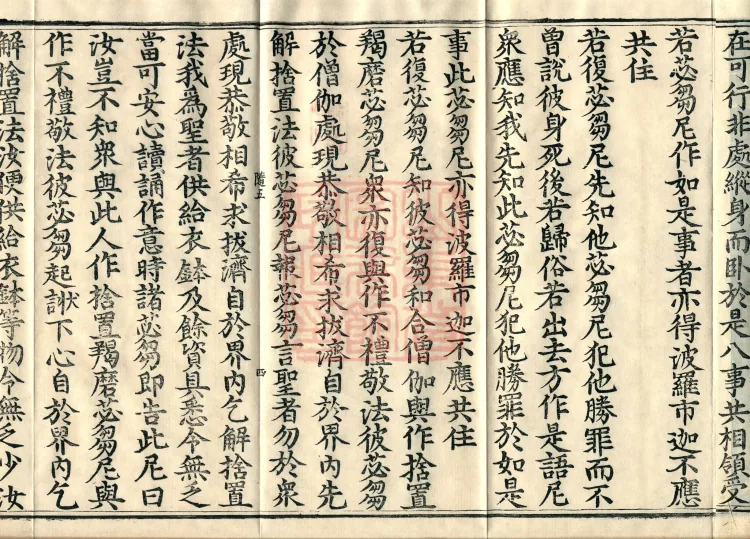 在可行非處縱身而卧於是八事共相領受
若苾芻尼作如是事者亦得波羅市迦不應
共住
若復苾芻尼先知他苾芻尼犯他勝罪而不
曾說彼身死後若歸俗若出去方作是語尼
衆應知我先知此苾芻尼犯他勝罪於如是
事此苾芻尼亦得波羅市迦不應共住
若復苾芻尼知彼苾芻和合僧伽與作捨置
羯磨苾芻尼衆亦復與作不禮敬法彼苾芻
於僧伽處現恭敬相希求拔濟自於界內先
解捨置法彼苾芻尼報苾芻言聖者勿於衆
隨五
四
處現恭敬相希求拔濟自於界內乞解捨置
法我爲聖者供給衣鉢及餘資具悉令無乏
當可安心讀誦作意時諸苾芻即告此尼曰
汝豈不知衆與此人作捨置羯磨苾芻尼與
作不禮敬法彼苾芻起
下心自於界內乞
解捨置法汝便供給衣鉢等物令無乏少汝